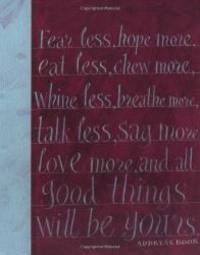 Fear less, hope more,
eat less, chew more,
Whine less, breathe more,
talk less, say more
love more, and all
good things
will be yours.
ADDRESS BOOK